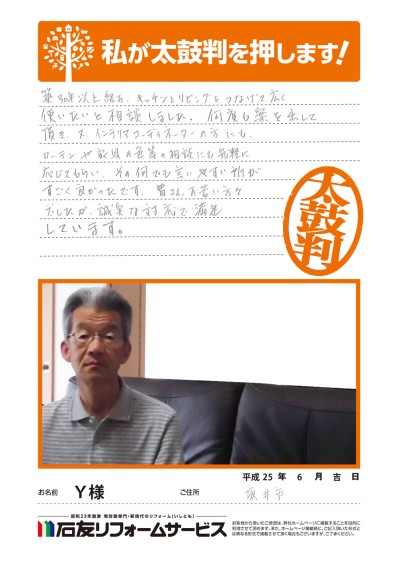 私が太鼓判を押します!
築30年以上経ち、キッチンとリビングをつなげて広く
使いたいと相談しました。何度も案を出して
頂き、又、インテリアコーディネーターの方にも、
カーテンや家具の色等の相談にも気軽に
応じてもらい、その何でも言いやすい所が
すごく良かったです。皆さんお若い方々
でしたが、誠実な対応で満足
しています。
太鼓判
平成 25 年 6 月 吉 日
お名前 Y様 ご住所 坂井市
昭和23年創業 増改築専門・新時代のリフォーム【いしとも】
石友リフォームサービス
お客様から頂いたご感想は、弊社ホームページに掲載することを目的に
利用させて頂きます。また、ホームページ掲載時に、ご記入頂いた形式と
は異なる形式で掲載させて頂く場合もございますが、ご了承くださいませ。